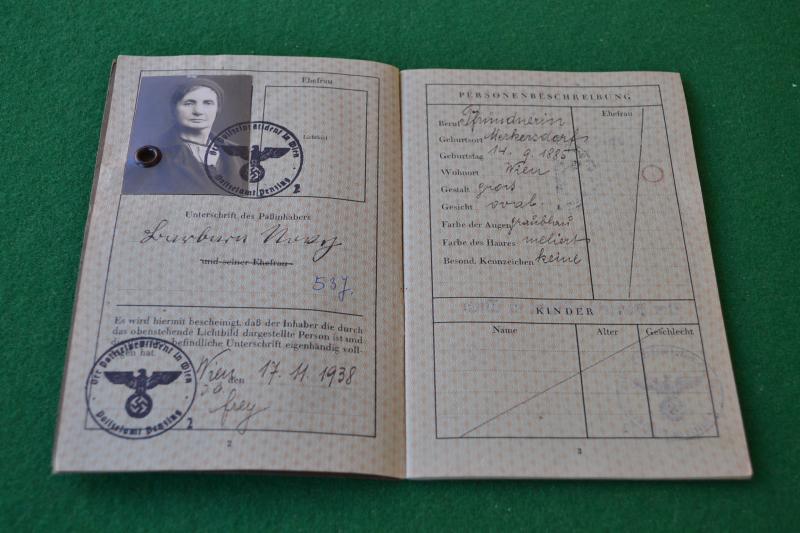 Ehefrau
Lichtbild
Der Polizeipräsident in Wien
Polizeiamt Penzing
2
Unterschrift des Paßinhabers
Barbara Novy
und seiner Ehefrau
53J.
Es wird hiermit bescheinigt, daß der Inhaber die durch
das obenstehende Lichtbild dargestellte Person ist und
die befindliche Unterschrift eigenhändig voll-
zogen hat.
Wien den 17. 11. 1938
Frey
Der Polizeipräsident in Wien
Polizeiamt Penzing
2
2
PERSONENBESCHREIBUNG
Ehefrau
Beruf Pfründnerin
Geburtsort Merkersdorf
Geburtstag 14. 9. 1885
Wohnort Wien
Gestalt gross
Gesicht oval
Farbe der Augen graublau
Farbe des Haares meliert
Besond. Kennzeichen keine
KINDER
Name Alter Geschlecht
3